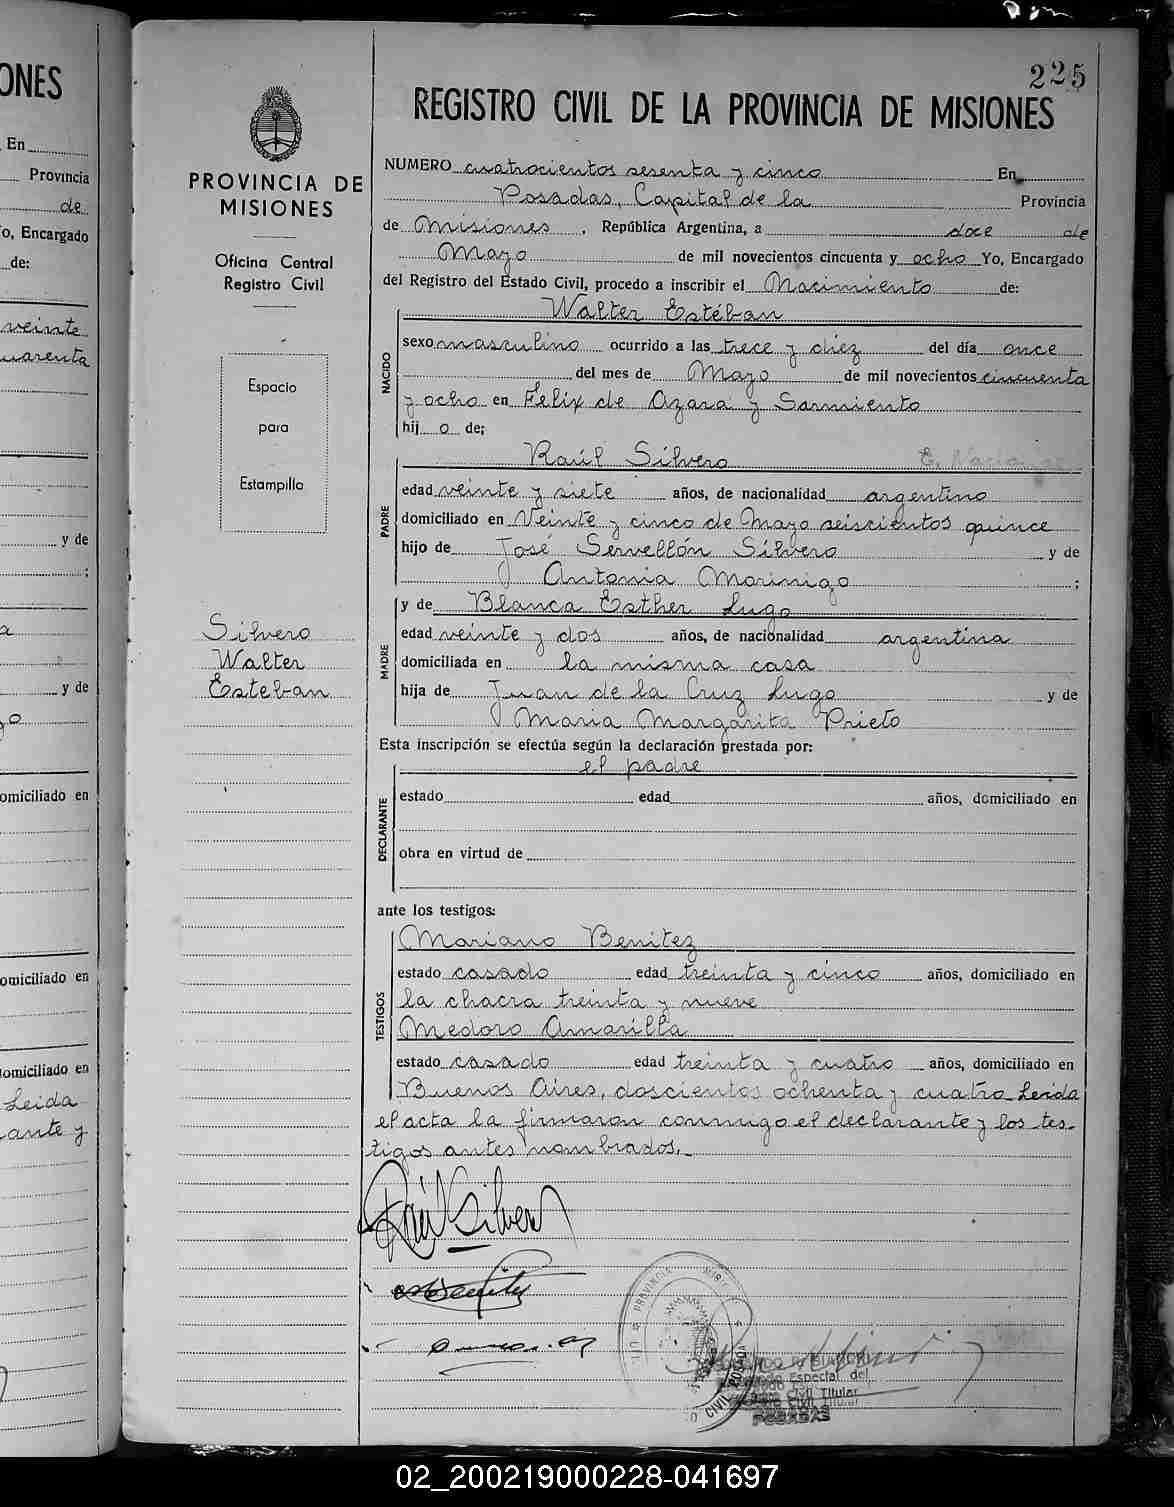 ONES
En
Provincia
de
o, Encargado
de:
veinte
uarenta
y de
;
a
y de
omiciliado en
omiciliado en
domiciliado en
Leida
ante y
PROVINCIA DE
MISIONES
Oficina Central
Registro Civil
Espacio
para
Estampilla
Silvero
Walter
Esteban
225
REGISTRO CIVIL DE LA PROVINCIA DE MISIONES
NUMERO cuatrocientos sesenta y cinco En
Posadas, Capital de la Provincia
de Misiones, República Argentina, a doce de
Mayo de mil novecientos cincuenta y ocho Yo, Encargado
del Registro del Estado Civil, procedo a inscribir el Nacimiento de:
Walter Estéban
NACIDO
sexo masculino ocurrido a las trece y diez del día once
del mes de Mayo de mil novecientos cincuenta
y ocho en Felix de Azara y Sarmiento
hij o de;
Raúl Silvero
PADRE
edad veinte y siete años, de nacionalidad argentino
domiciliado en Veinte y cinco de Mayo seiscientos quince
hijo de José Servellón Silvero y de
Antonia Morinigo ;
y de Blanca Esther Lugo
MADRE
edad veinte y dos años, de nacionalidad argentina
domiciliada en la misma casa
hija de Juan de la Cruz Lugo y de
Maria Margarita Prieto
Esta inscripción se efectúa según la declaración prestada por:
el padre
DECLARANTE
estado edad años, domiciliado en
obra en virtud de
ante los testigos:
TESTIGOS
Mariano Benitez
estado casado edad treinta y cinco años, domiciliado en
la chacra treinta y nueve
Medoro Amarilla
estado casado edad treinta y cuatro años, domiciliado en
Buenos Aires, doscientos ochenta y cuatro Leida
el acta la firmaron conmigo el declarante y los tes-
tigos antes nombrados.
Raúl Silvero
MBenitez
PROVINCIA
CIVIL POSADAS
Especial del
Civil Titular
POSADAS
02_200219000228-041697